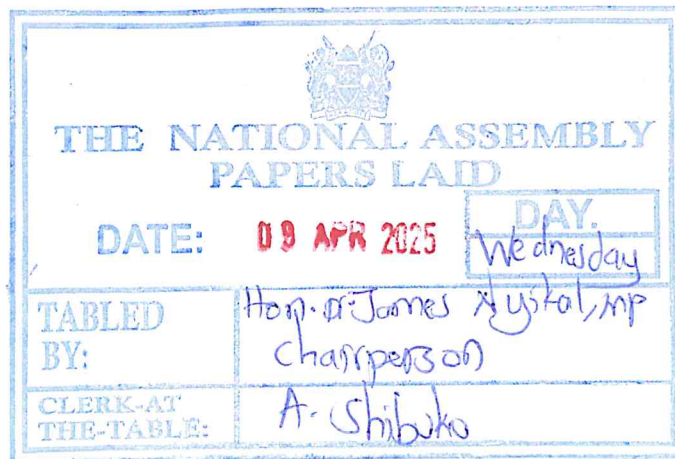 THE NATIONAL ASSEMBLY
PAPERS LAID
DATE: 09 APR 2025
DAY.
Wednesday
TABLED BY:
Hon. Dr. James Nyikal, MP
Chairperson
CLERK-AT THE-TABLE:
A. Shibuko